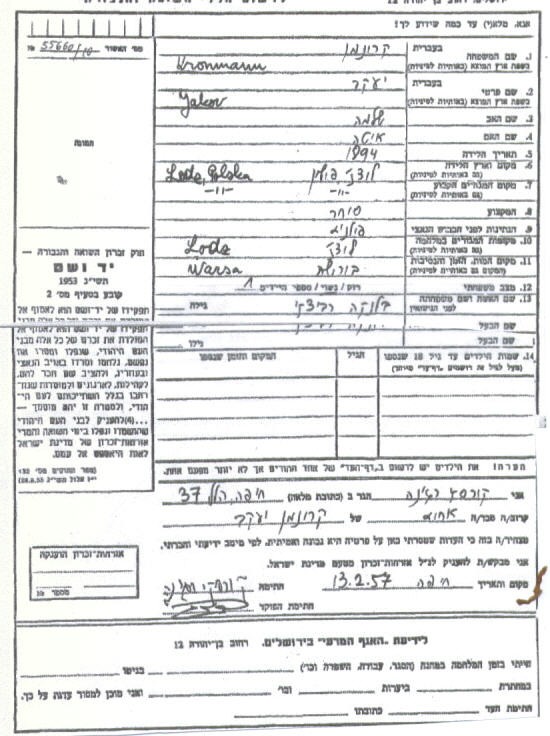 אנא, מלא(י) עד כמה שידוע לך!
מס׳ האשור 55660/10
תמונה
חוק זכרון השואה והגבורה —
יד ושם
תשי״ג 1953
קובע בסעיף מס׳ 2
תפקידו של יד-ושם הוא לאסוף אל
המולדת את זכרם של כל אלה מבני
העם היהודי, שנפלו ומסרו את
נפשם, נלחמו ומרדו באויב הנאצי
ובעוזריו, ולהציב שם וזכר להם,
לקהילות, לארגונים ולמוסדות שנח־
רבו בגלל השתייכותם לעם היי
הודי, ולמטרה זו יהא מוסמך —
...(4)להעניק לבני העם היהודי
שהושמדו ונפלו בימי השואה והמרי
אזרחות-זכרון של מדינת ישראל
לאות היאספם אל עמם.
אזרחות-זכרון הוענקה
מספר
1. שם המשפחה בעברית קרונמן
בשפת ארץ המוצא (באותיות לטיניות) Kronmann
2. שם פרטי בעברית יעקב
בשפת ארץ המוצא (באותיות לטיניות) Jakov
3. שם האב שלמה
4. שם האם איטה
5. תאריך הלידה 1894
6. מקום וארץ הלידה (גם באותיות לטיניות) לודז׳ פולין Lodz, Polska
7. מקום המגורים הקבוע (גם באותיות לטיניות) -״- -״-
8. המקצוע סוחר
9. הנתינות לפני הכבוש הנאצי פולנית
10. מקומות המגורים במלחמה (גם באותיות לטיניות) לודז׳ Lodz
11. מקום המות, הזמן והנסיבות (המקום גם באותיות לטיניות) Warsa
12. מצב משפחתי רווק / נשוי / מספר הילדים 1
13. שם האשה ושם משפחתה לפני הנישואין גילה
שם הבעל גילו
14. שמות הילדים עד גיל 18 שנספו הגיל המקום והזמן שנספו
(מעל לגיל זה רושמים ״דף-עד״ מיוחד)
הערה: את הילדים יש לרשום ב״דף-העד״ של אחד ההורים אך לא יותר מפעם אחת.
אני הגר ב (כתובת מלאה) חיפה, הלל 37
קרוב/ה מכר/ה אחות של קרונמן יעקב
מצהיר/ה בזה כי העדות שמסרתי כאן על פרטיה היא נכונה ואמיתית, לפי מיטב ידיעתי והכרתי.
אני מבקש/ת להעניק לנ״ל אזרחות-זכרון מטעם מדינת ישראל.
מקום ותאריך חיפה 13.2.57 חתימה
חתימת הפוקד
לידיעת ״האגף המדעי״ בירושלים, רחוב בן-יהודה 12
הייתי בזמן המלחמה במחנה (הסגר, עבודה, השמדה וכו׳) בגיטו
במחתרת ביערות וכו׳ ואני מוכן למסור עדות על כך.
חתימת העד כתובתו